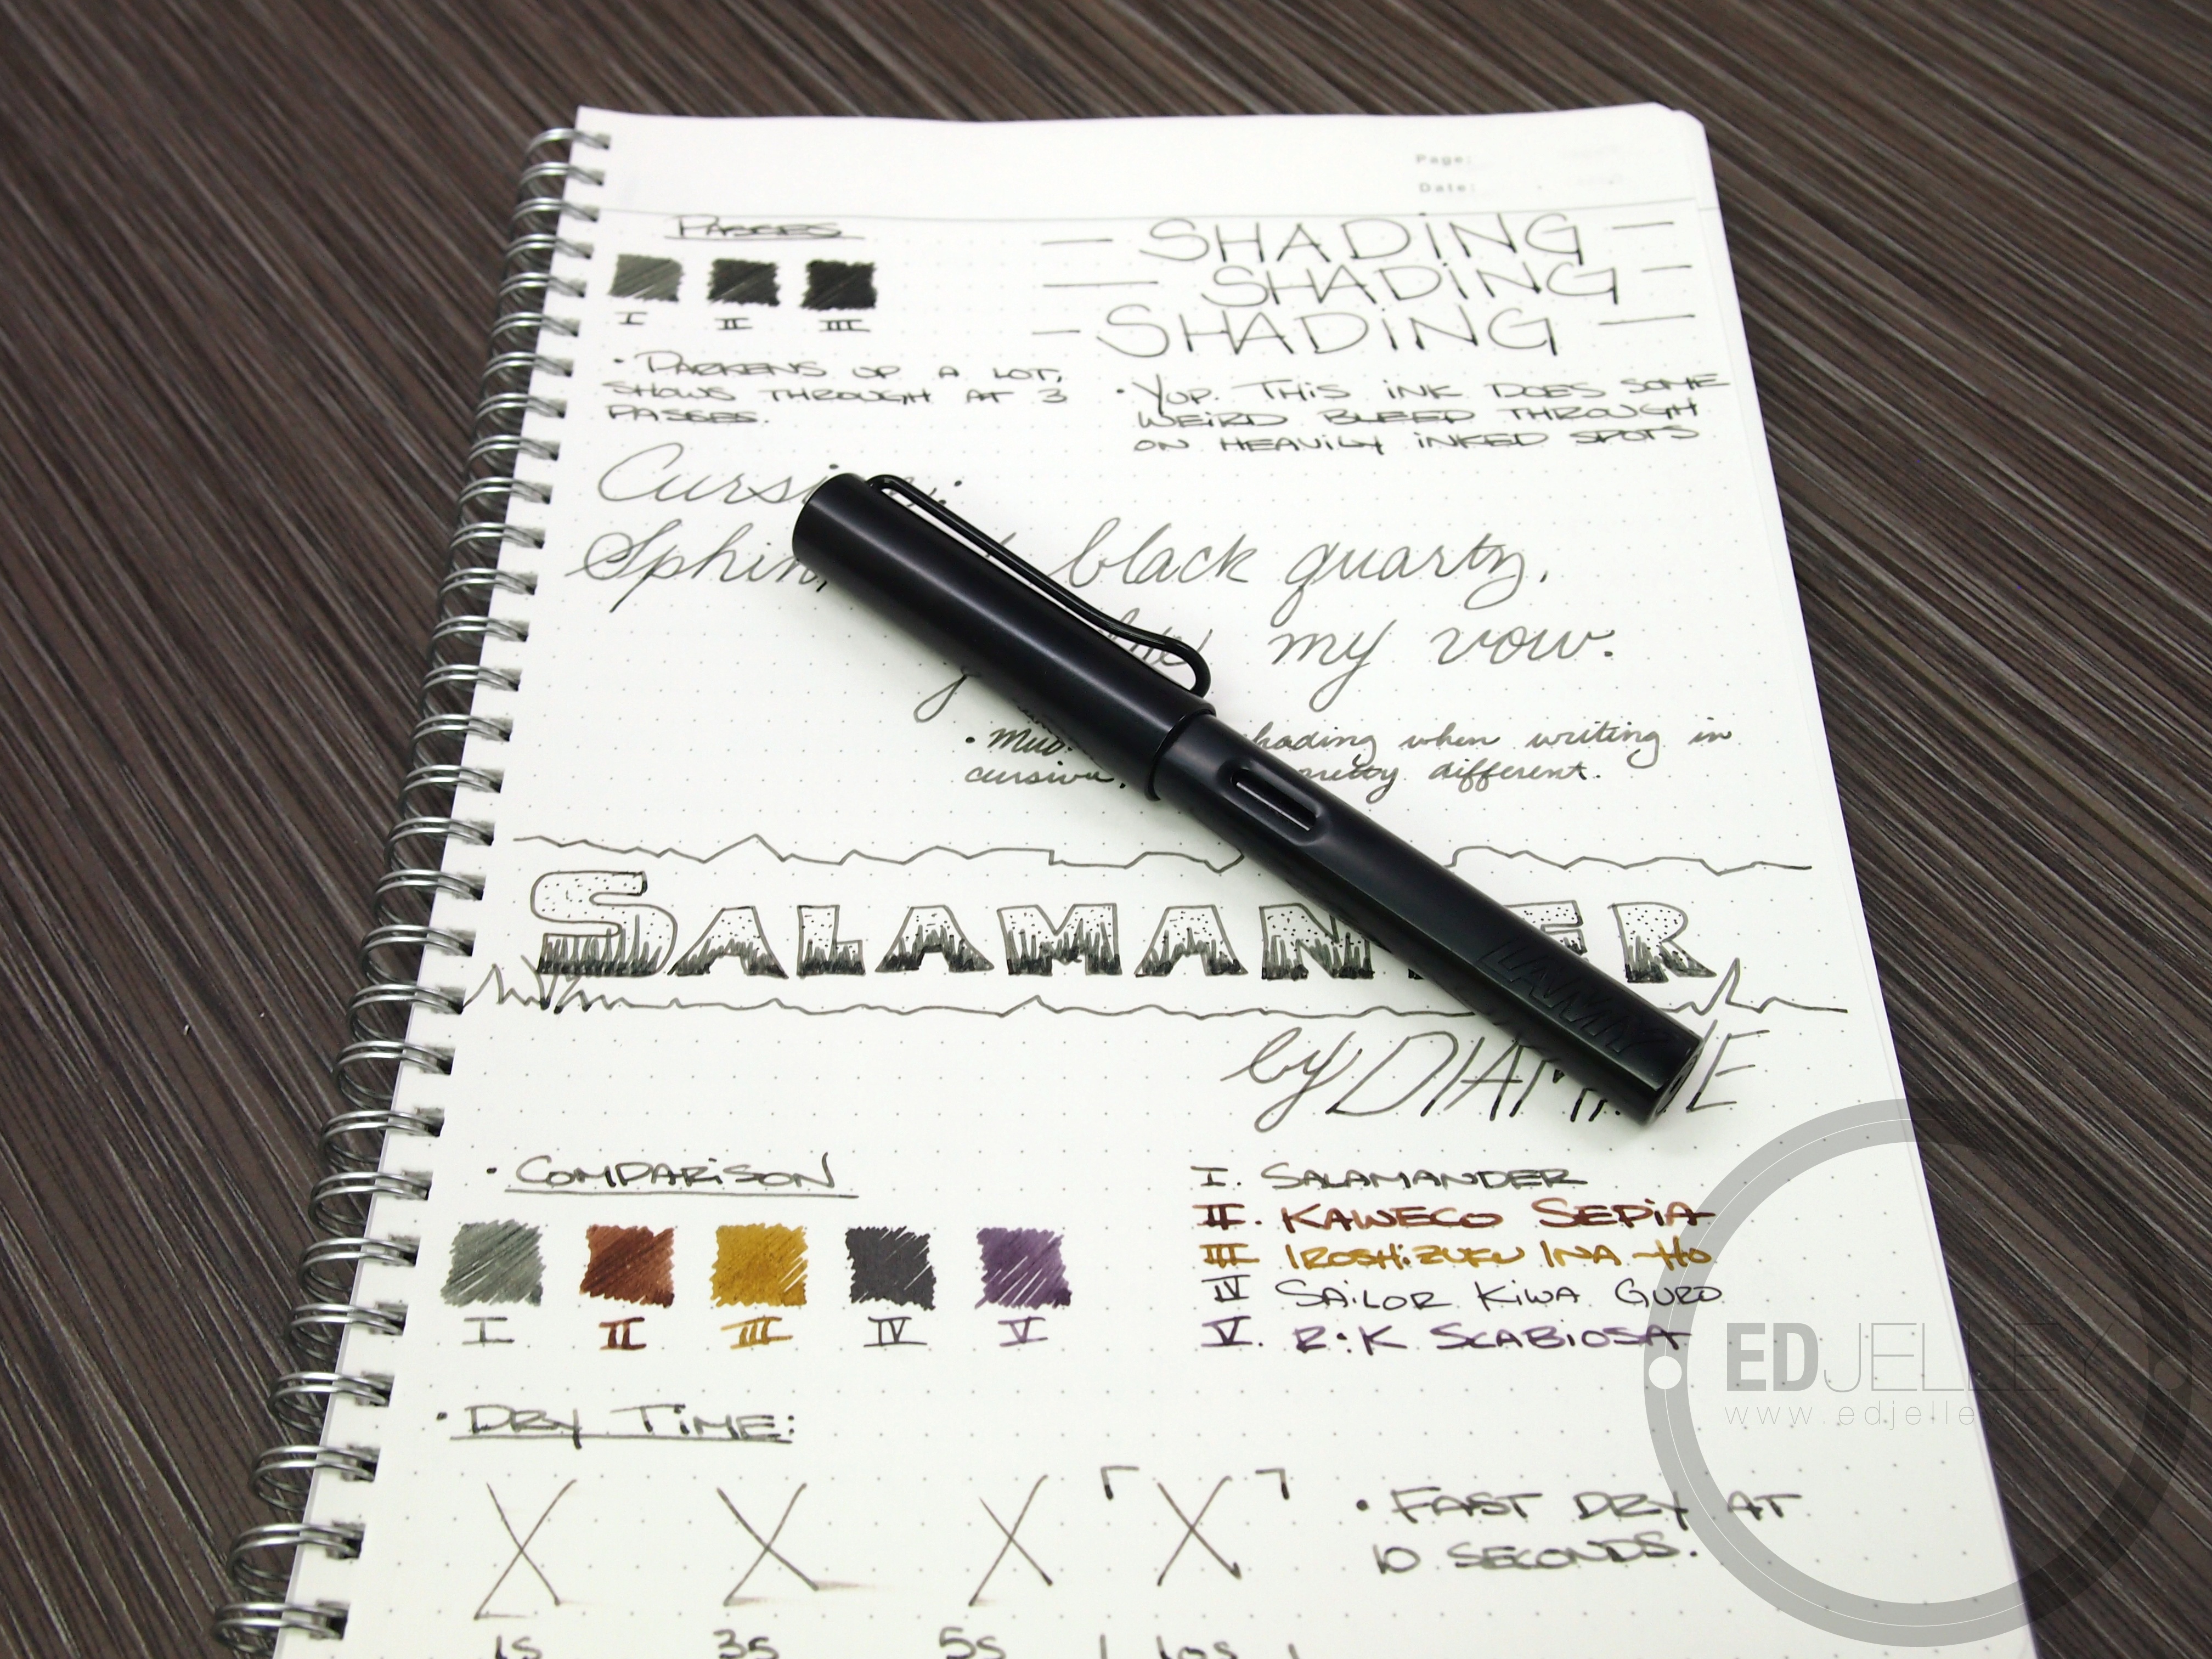 Page:
Date:
PASSES
— SHADING —
— SHADING —
— SHADING —
I II III
• DARKENS UP A LOT,
SHOWS THROUGH AT 3
PASSES.
• YUP. THIS INK DOES SOME
WEIRD BLEED THROUGH
ON HEAVILY INKED SPOTS
Cursi
Sphin black quartz,
my vow.
• Muc hading when writing in
cursive. pretty different.
SALAMAN ER
LAMY
by DIAMINE
• COMPARISON
I II III IV V
I. SALAMANDER
II. KAWECO SEPIA
III IROSHIZUKU INA-HO
IV SAILOR KIWA GURO
V. R:K SCABIOSA
EDJELLEY
www.edjelley.com
• DRY TIME:
X X X ┌ X ┐
1s 3s 5s | 10s |
• FAST DRY AT
10 SECONDS.